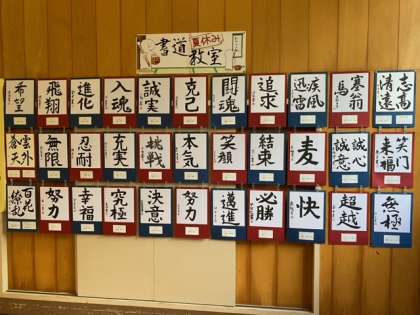 書道
夏休み
教室
希望
飛翔
進化
入魂
誠実
克己
闘魂
追求
疾風
迅雷
塞翁
馬
志高
清遠
雲外
蒼天
無限
忍耐
充実
挑戦
本気
笑顔
結束
麦
誠心
誠意
笑門
来福
百花
繚乱
努力
幸福
究極
決意
努力
邁進
必勝
快
超越
無極